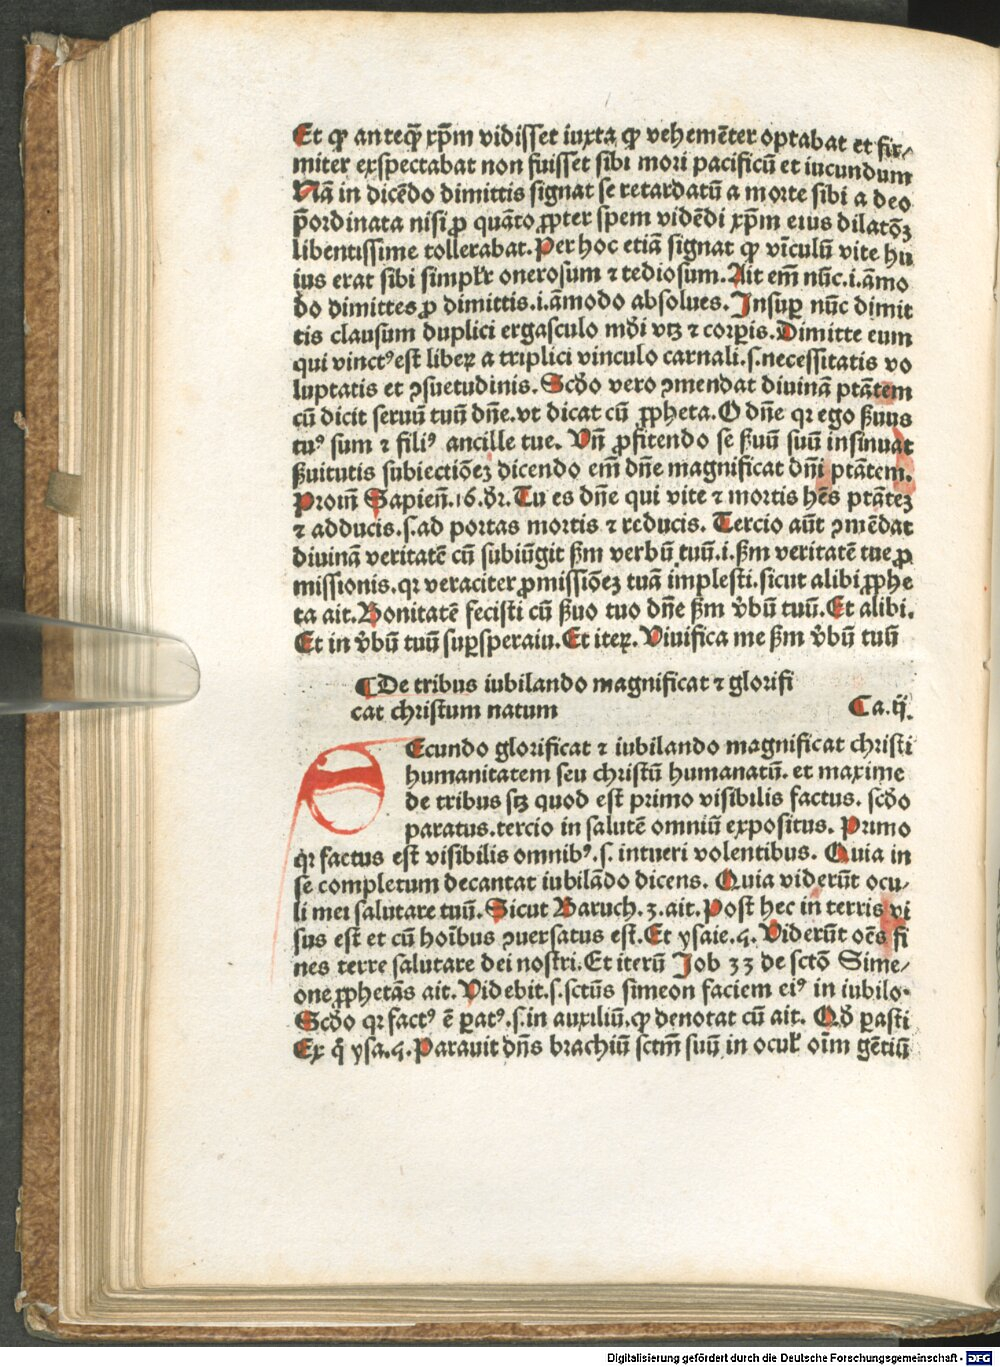 Et ꝙ anteq̄ xp̄m vidisset iuxta ꝙ vehemēter optabat et fir⸗
miter exspectabat non fuisset sibi mori pacificū et iucundum
Nā in dicēdo dimittis signat se retardatū a morte sibi a deo
p̄ordinata nisi ꝓ quāto ꝓpter spem vidēdi xp̄m eius dilatōꝫ
libentissime tollerabat. Per hoc etiā signat ꝙ vīculū vite hu
ius erat sibi simpłr onerosum ⁊ tediosum. Ait em̄ nūc .i. āmo
do dimittes ꝓ dimittis .i. āmodo absolues. Insuꝑ nūc dimit
tis clausum duplici ergasculo mūdi vtꝫ ⁊ corꝑis. Dimitte eum
qui vinctꝰ est liber a triplici vinculo carnali .s. necessitatis vo
luptatis et ꝯsuetudinis. Scd̄o vero ꝯmendat diuinā ptāteꝫ
cū dicit seruū tuū dn̄e. vt dicat cū ꝓpheta. O dn̄e qꝛ ego ẜuus
tuꝰ sum ⁊ filiꝰ ancille tue. Vn̄ ꝓfitendo se ẜuū suū insinuat
ẜuitutis subiectiōeꝫ dicendo em̄ dn̄e magnificat dn̄i ptātem.
Proin̄ Sapien̄. 16. dr̄. Tu es dn̄e qui vite ⁊ mortis hēs ptāteꝫ
⁊ adducis .s. ad portas mortis ⁊ reducis. Tercio aūt ꝯmēdat
diuinā veritatē cū subiūgit ẜm verbū tuū .i. ẜm veritatē tue ꝓ
missionis. qꝛ veraciter ꝓmissiōeꝫ tuā implesti. sicut alibi ꝓphe
ta ait. Bonitatē fecisti cū ẜuo tuo dn̄e ẜm v̄bū tuū. Et alibi.
Et in v̄bū tuū suꝑsperaui. Et iteꝝ. Viuifica me ẜm v̄bū tuū
⸿De tribus iubilando magnificat ⁊ glorifi
cat christum natum Ca. ij.
Secundo glorificat ⁊ iubilando magnificat christi
humanitatem seu christū humanatū. et maxime
de tribus sꝫ quod est primo visibilis factus. scd̄o
paratus. tercio in salutē omniū expositus. Primo
qꝛ factus est visibilis omnibꝰ .s. intueri volentibus. Quia in
se completum decantat iubilādo dicens. Quia viderūt ocu⸗
li mei salutare tuū. Sicut Baruch. 3. ait. Post hec in terris vi
sus est et cū hoībus ꝯuersatus est. Et ysaie. 4. Viderūt oēs fi
nes terre salutare dei nostri. Et iterū Job 33 de sctō Sime⸗
one ꝓphetās ait. Videbit .s. sctūs simeon faciem eiꝰ in iubilo.
Scd̄o qꝛ factꝰ ē ꝑatꝰ .s. in auxiliū. ꝙ denotat cū ait. Qd̄ ꝑasti
Ex q̄ ysa. 4. Parauit dn̄s brachiū sctm̄ suū in ocuł oīm gētiū
Digitalisierung gefördert durch die Deutsche Forschungsgemeinschaft - DFG